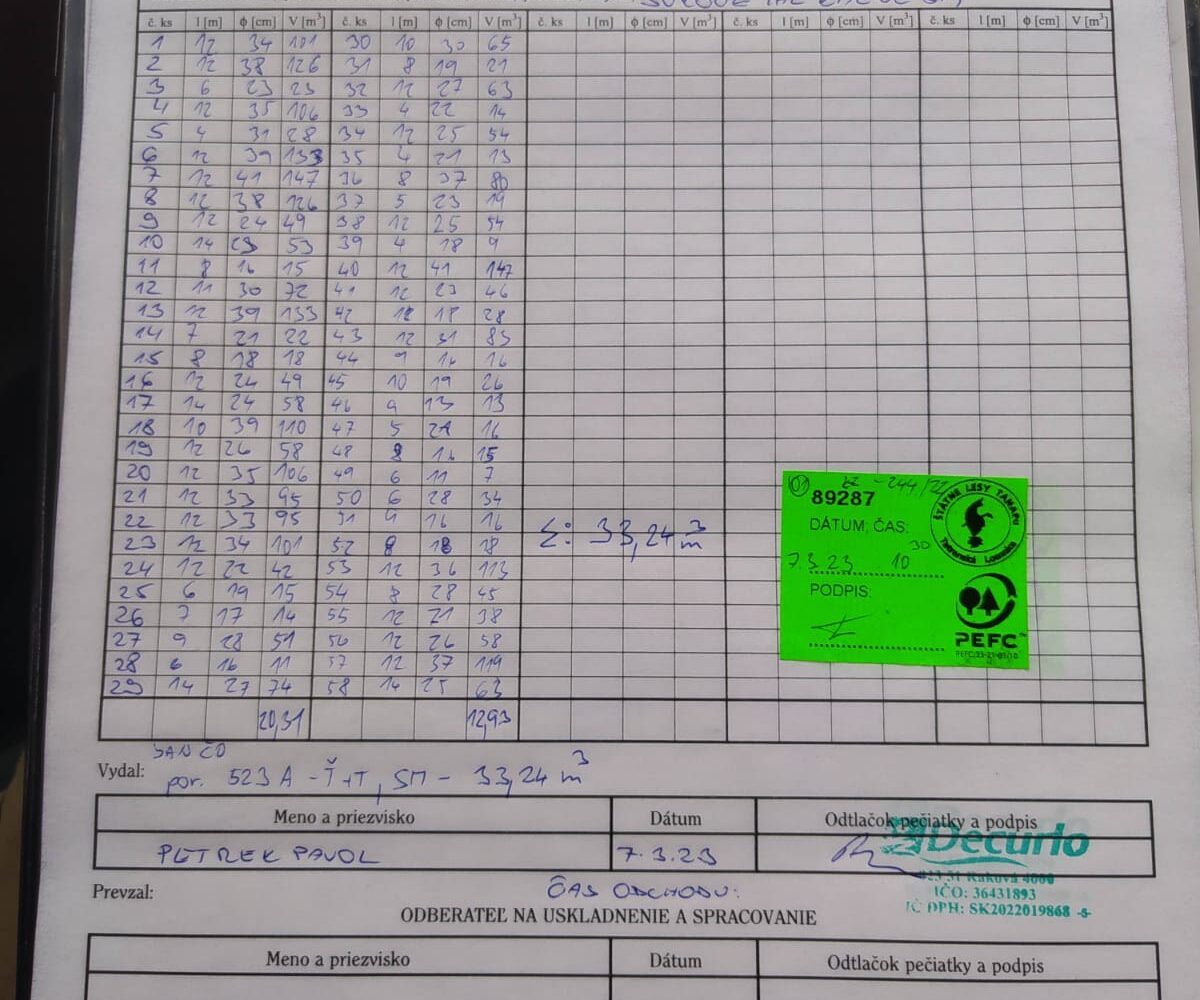 č. ks l [m] ϕ [cm] V [m³] č. ks l [m] ϕ [cm] V [m³] č. ks l [m] ϕ [cm] V [m³] č. ks l [m] ϕ [cm] V [m³] č. ks l [m] ϕ [cm] V [m³]
1 12 34 101 30 10 30 65
2 12 38 126 31 8 19 21
3 6 23 23 32 12 27 63
4 12 35 106 33 4 22 14
5 4 31 28 34 12 25 54
6 12 39 133 35 4 21 13
7 12 41 147 36 8 37 80
8 12 38 126 37 5 23 19
9 12 24 49 38 12 25 54
10 14 23 53 39 4 18 9
11 8 16 15 40 12 41 147
12 11 30 72 41 12 23 46
13 12 39 133 42 12 18 28
14 7 21 22 43 12 31 83
15 8 18 18 44 9 16 16
16 12 24 49 45 10 19 26
17 14 24 58 46 9 13 13
18 10 39 110 47 5 21 16
19 12 26 58 48 8 16 15
20 12 35 106 49 6 11 7
21 12 33 95 50 6 28 34
22 12 33 95 51 9 16 16
23 12 34 101 52 8 18 18
24 12 22 42 53 12 36 113
25 6 19 15 54 8 28 45
26 7 17 14 55 12 21 38
27 9 28 51 56 12 26 58
28 6 16 11 57 12 37 119
29 14 27 74 58 14 25 63
20,31 12,93
Σ: 33,24 m³
01
89287
DÁTUM, ČAS:
7.3.23 10 30
PODPIS:
ŠTÁTNE LESY TANAPU
Tatranská Lomnica
PEFC™
JAN ČO
Vydal: por. 523 A - Ť+T, SM - 33,24 m³
Meno a priezvisko Dátum Odtlačok pečiatky a podpis
PETREK PAVOL 7.3.23
Decurio
023 51 Raková 4000
IČO: 36431893
IČ DPH: SK2022019868 -8-
Prevzal: ČAS ODCHODU:
ODBERATEĽ NA USKLADNENIE A SPRACOVANIE
Meno a priezvisko Dátum Odtlačok pečiatky a podpis